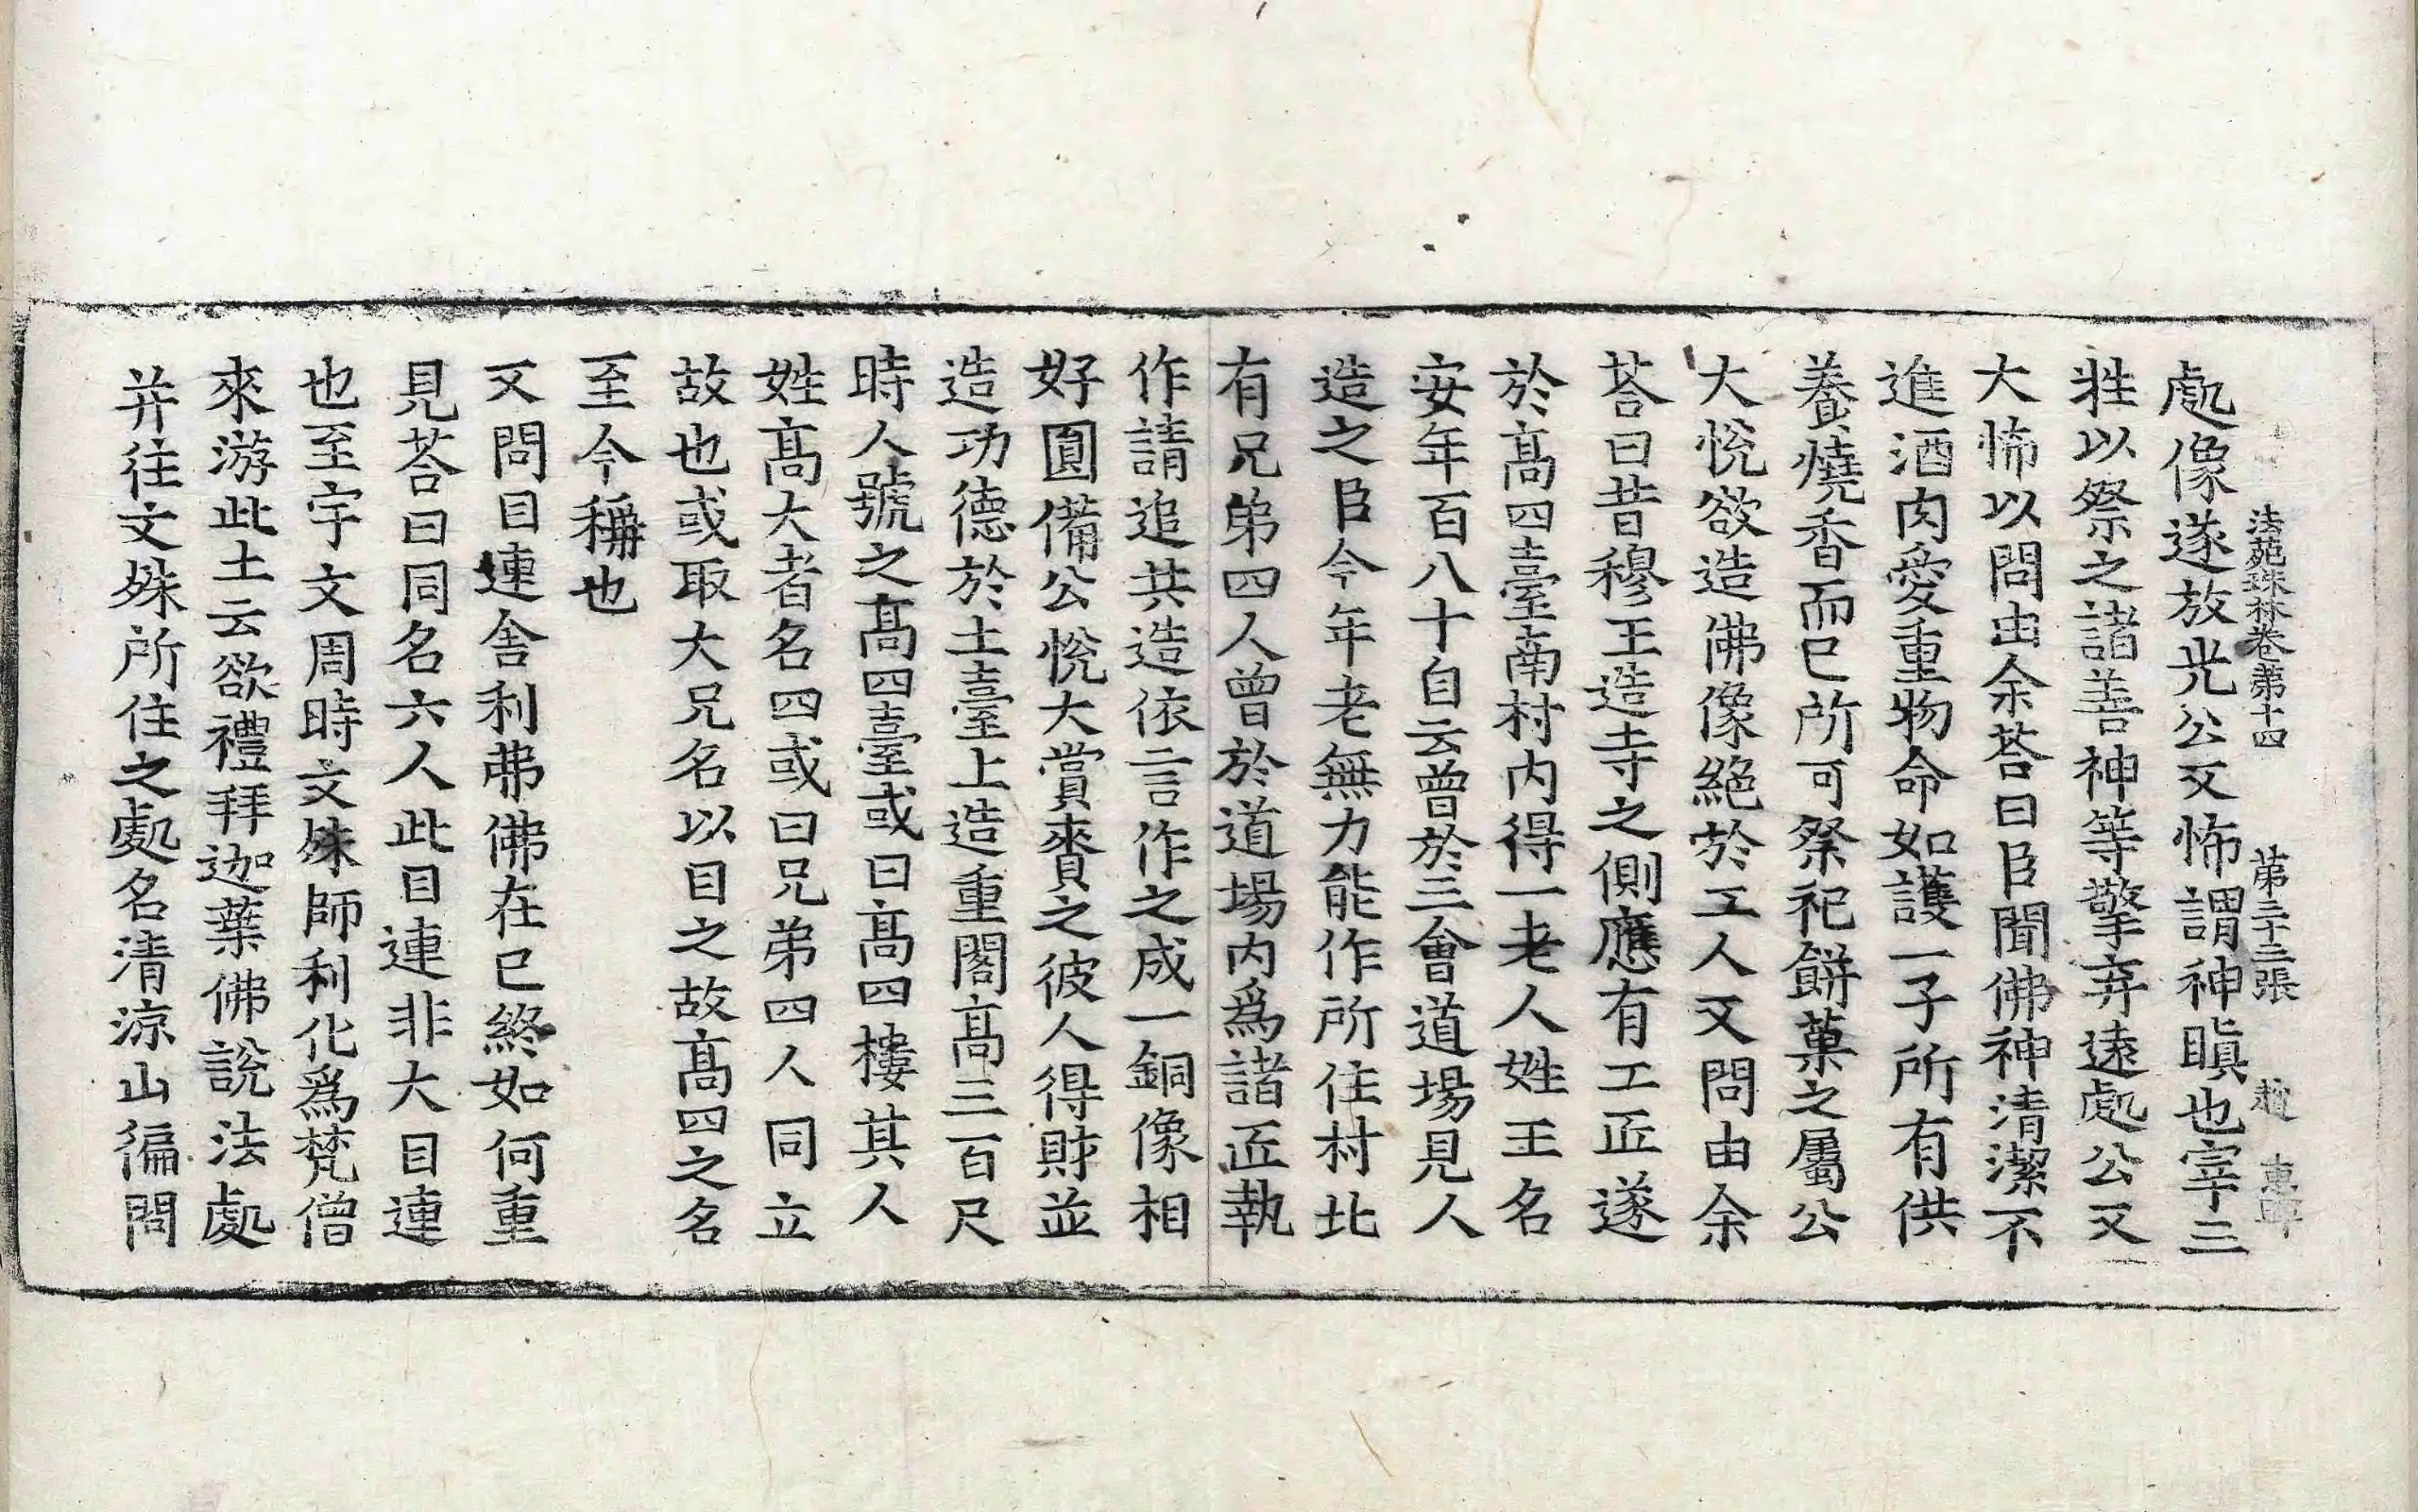 法苑珠林卷第十四 第二十三張 趙 惠
處像遂放光公又怖謂神瞋也宰三
牲以祭之諸善神等擎弃遠處公又
大怖以問由余荅曰臣聞佛神清潔不
進酒肉愛重物命如護一子所有供
養燒香而已所可祭祀餅菓之屬公
大悅欲造佛像絕於工人又問由余
荅曰昔穆王造寺之側應有工匠遂
於高四臺南村內得一老人姓王名
安年百八十自云曾於三會道場見人
造之臣今年老無力能作所住村北
有兄弟四人曾於道場內爲諸匠執
作請追共造依言作之成一銅像相
好圓備公悅大賞賚之彼人得財並
造功德於土臺上造重閣高三百尺
時人號之高四臺或曰高四樓其人
姓高大者名四或曰兄弟四人同立
故也或取大兄名以目之故高四之名
至今稱也
又問目連舍利弗佛在已終如何重
見荅曰同名六人此目連非大目連
也至宇文周時文殊師利化爲梵僧
來游此土云欲禮拜迦葉佛說法處
并往文殊所住之處名清涼山徧問